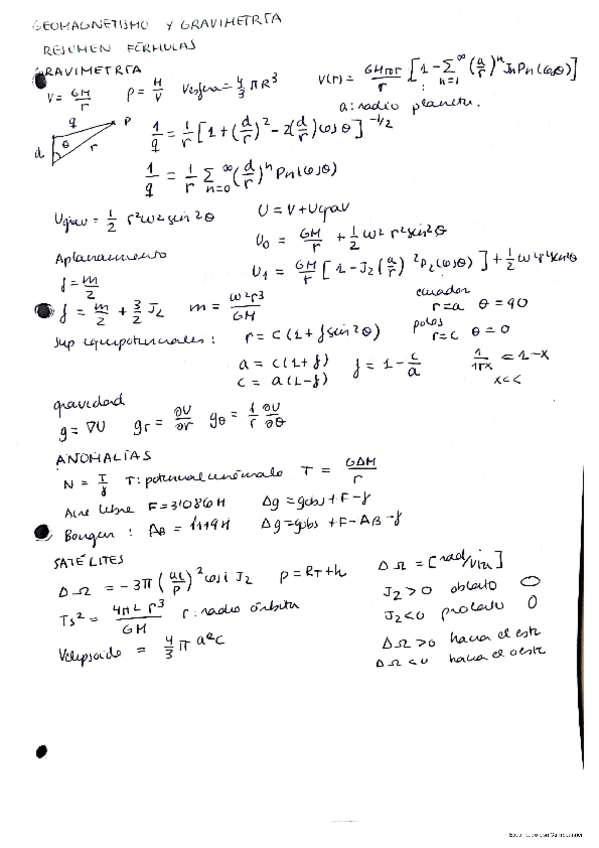 GEOMAGNETISMO Y GRAVIMETRÍA
RESUMEN FÓRMULAS
GRAVIMETRÍA
V = GM/r    ρ = M/V    Vesfera = 4/3 π R³    V(r) = GMTOT/r [1 - Σ n=1 ∞ (a/r)^n Jn Pn(cosθ)]
a: radio planeta.
q P d θ r
1/q = 1/r [1 + (d/r)² - 2(d/r) cosθ]^-1/2
1/q = 1/r Σ n=0 ∞ (d/r)^n Pn(cosθ)
Ugrav = 1/2 r²ω² sen²θ    U = V + Ugrav
U0 = GM/r + 1/2 ω² r² sen²θ
Aplanamiento    U1 = GM/r [1 - J2 (a/r)² P2(cosθ)] + 1/2 ω² r² sen²θ
f = m/2
f = m/2 + 3/2 J2    m = ω²r³/GM    ecuador r=a θ=90
sup equipotenciales: r = c(1 + f sen²θ)    polos r=c θ=0
a = c(1+f)    f = 1 - c/a    1/1+x = 1-x
c = a(1-f)    x<<
gravedad
g = ∇U    gr = ∂U/∂r    gθ = 1/r ∂U/∂θ
ANOMALÍAS
N = T/γ    T: potencial anómalo    T = GΔM/r
Aire libre F = 3'086H    Δg = gobs + F - γ
Bouguer: AB = 1'119H    Δg = gobs + F - AB - γ
SATÉLITES    ΔΩ = [rad/vuelta]
ΔΩ = -3π (ae/p)² cos i J2    p = RT + h    J2 > 0 oblato
Ts² = 4π² r³/GM    r: radio órbita    J2 < 0 prolato
Velipsoide = 4/3 π a²c    ΔΩ > 0 hacia el este
ΔΩ < 0 hacia el oeste